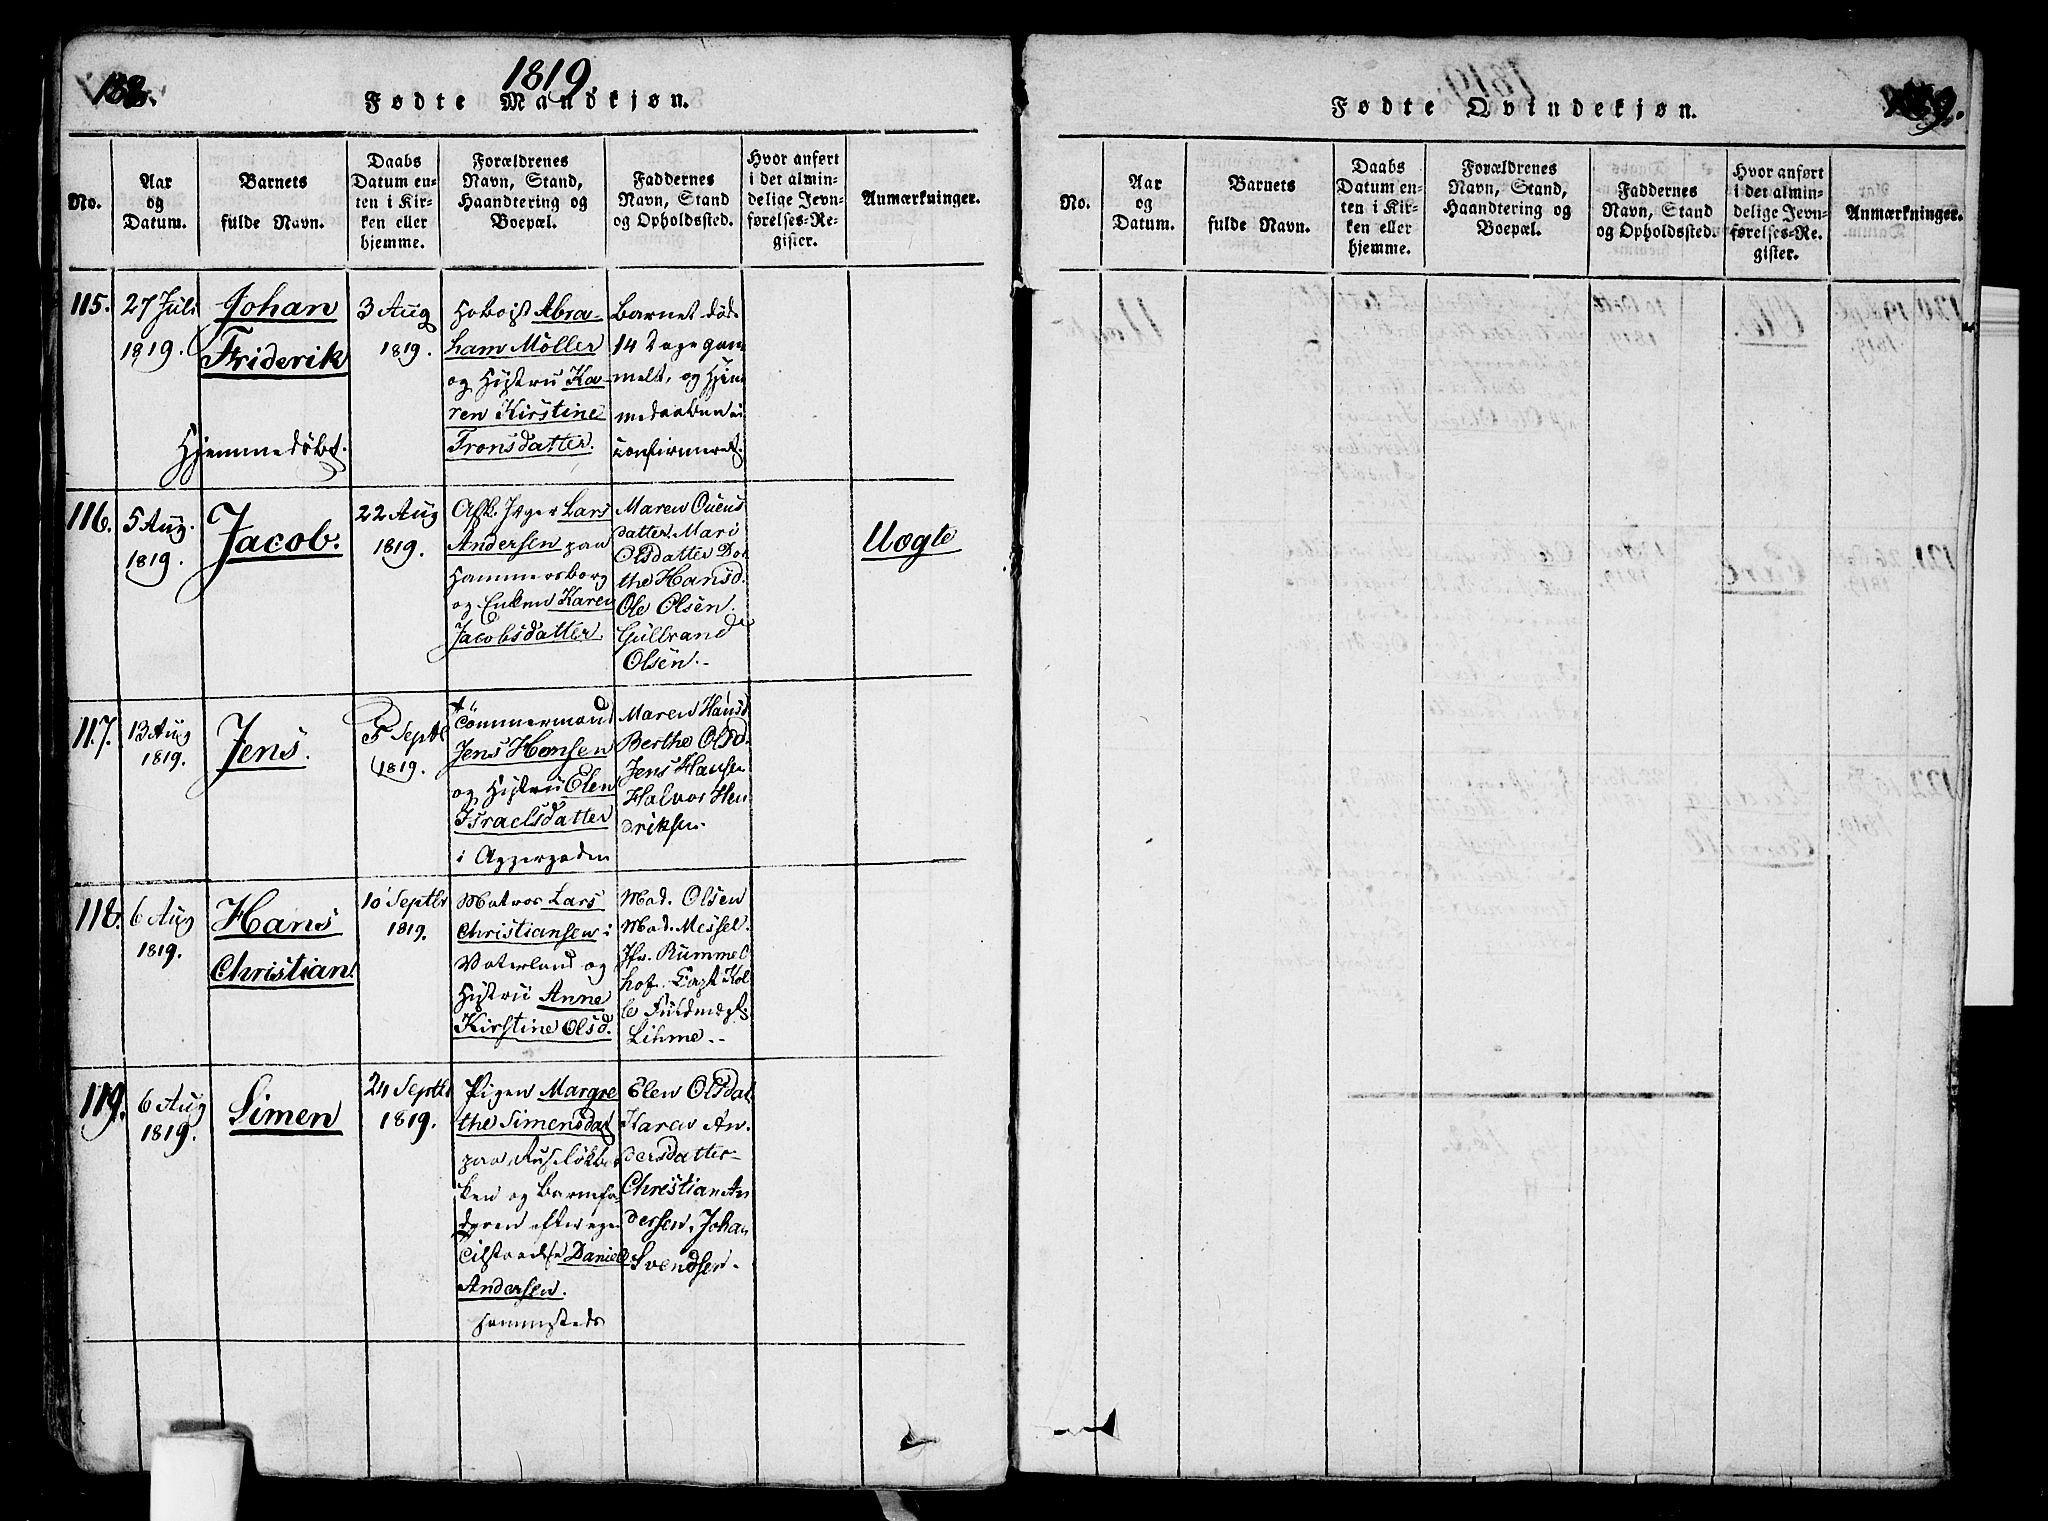 188.
1819
Fødte Mandkjøn.
No.
Aar
og
Datum.
Barnets
fulde Navn.
Daabs
Datum en-
ten i Kir-
ken eller
hjemme.
Forældrenes
Navn, Stand,
Haandtering og
Boepæl.
Faddernes
Navn, Stand
og Opholdssted.
Hvor anført
i det almin-
delige Jevn-
førelses-Re-
gister.
Anmærkninger.
115.
27 Juli
1819.
Johan
Friderik
Hjemmedöbt.
3 Aug
1819.
Hoboist Abra-
ham Möller
og Hustru Ka-
ren Kirstine
Tronsdatter.
Barnet död
14 Dage gam
melt, og Hjem
medaaben ei
confirmeret.
116.
5 Aug.
1819.
Jacob.
22 Aug
1819.
Afsk. Jæger Lars
Andersen paa
Hammersborg
og Enken Karen
Jacobsdatter.
Maren Ouens
datter Mari
Olsdatter Dor
the Hansd.
Ole Olsen.
Gulbrand
Olsen.
Uægte
117.
13 Aug
1819.
Jens.
5 Septbr
1819.
Tömmermand
Jens Hansen
og Hustru Elen
Israelsdatter
i Aggergaden
Maren Hansd
Berthe Olsd.
Jens Hansen
Halvor Hen
driksen.
118.
6 Aug
1819.
Hans
Christian.
10 Septbr
1819.
Matros Lars
Christiansen i
Vaterland og
Hustru Anne
Kirstine Olsd.
Mad. Olsen
Mad. Messel.
Jfr. Rummel
hof. Capt Kol
be Fuldmægt.
Lihme.
119.
6 Aug
1819.
Simen
24 Septbr
1819.
Pigen Margre
the Simensdat
paa Ruseløkba
ken og Barnefa
deren efter egen
Tilstaaelse Daniel
Andersen.
sammesteds
Elen Olsdat
Karen An
dersdatter
Christian An
dersen, Johan
Svendsen.
189.
Fødte Qvindekjøn.
No.
Aar
og
Datum.
Barnets
fulde Navn.
Daabs
Datum en-
ten i Kir-
ken eller
hjemme.
Forældrenes
Navn, Stand,
Haandtering og
Boepæl.
Faddernes
Navn, Stand
og Opholdssted.
Hvor anført
i det almin-
delige Jevn-
førelses-Re-
gister.
Anmærkninger.